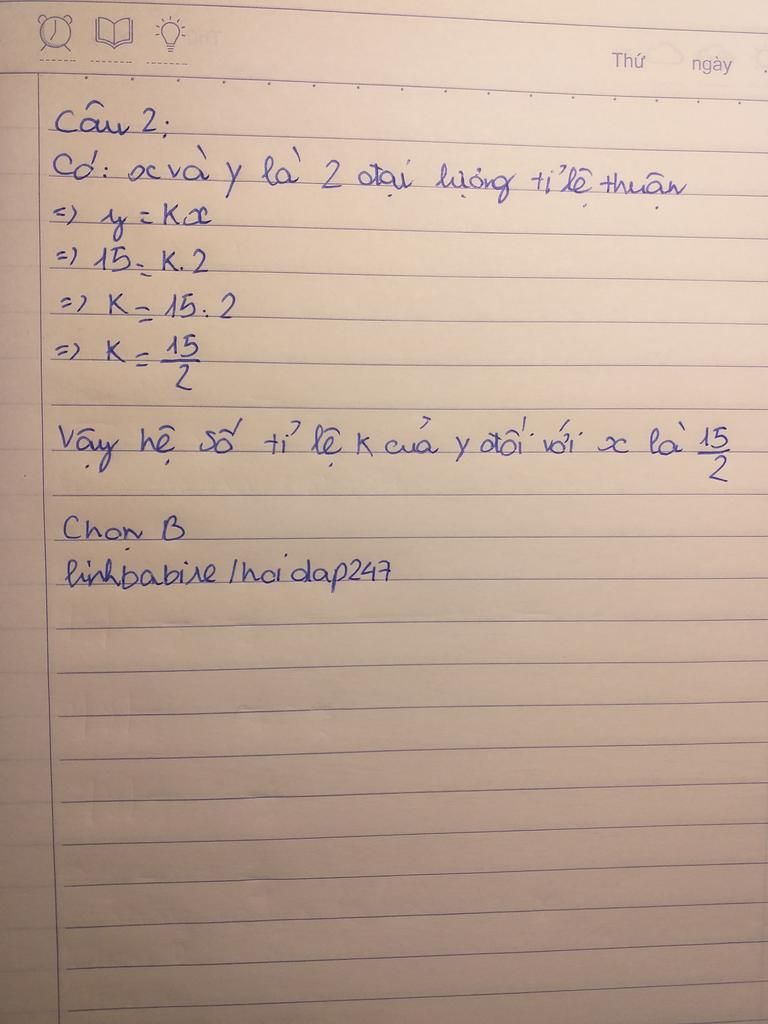 Thứ ngày
Câu 2:
Có: x và y là 2 đại lượng tỉ lệ thuận
=> y = K.x
=> 15 = K.2
=> K = 15:2
=> K = 15/2
Vậy hệ số tỉ lệ K của y đối với x là 15/2
Chọn B
linhbabie/hoidap247